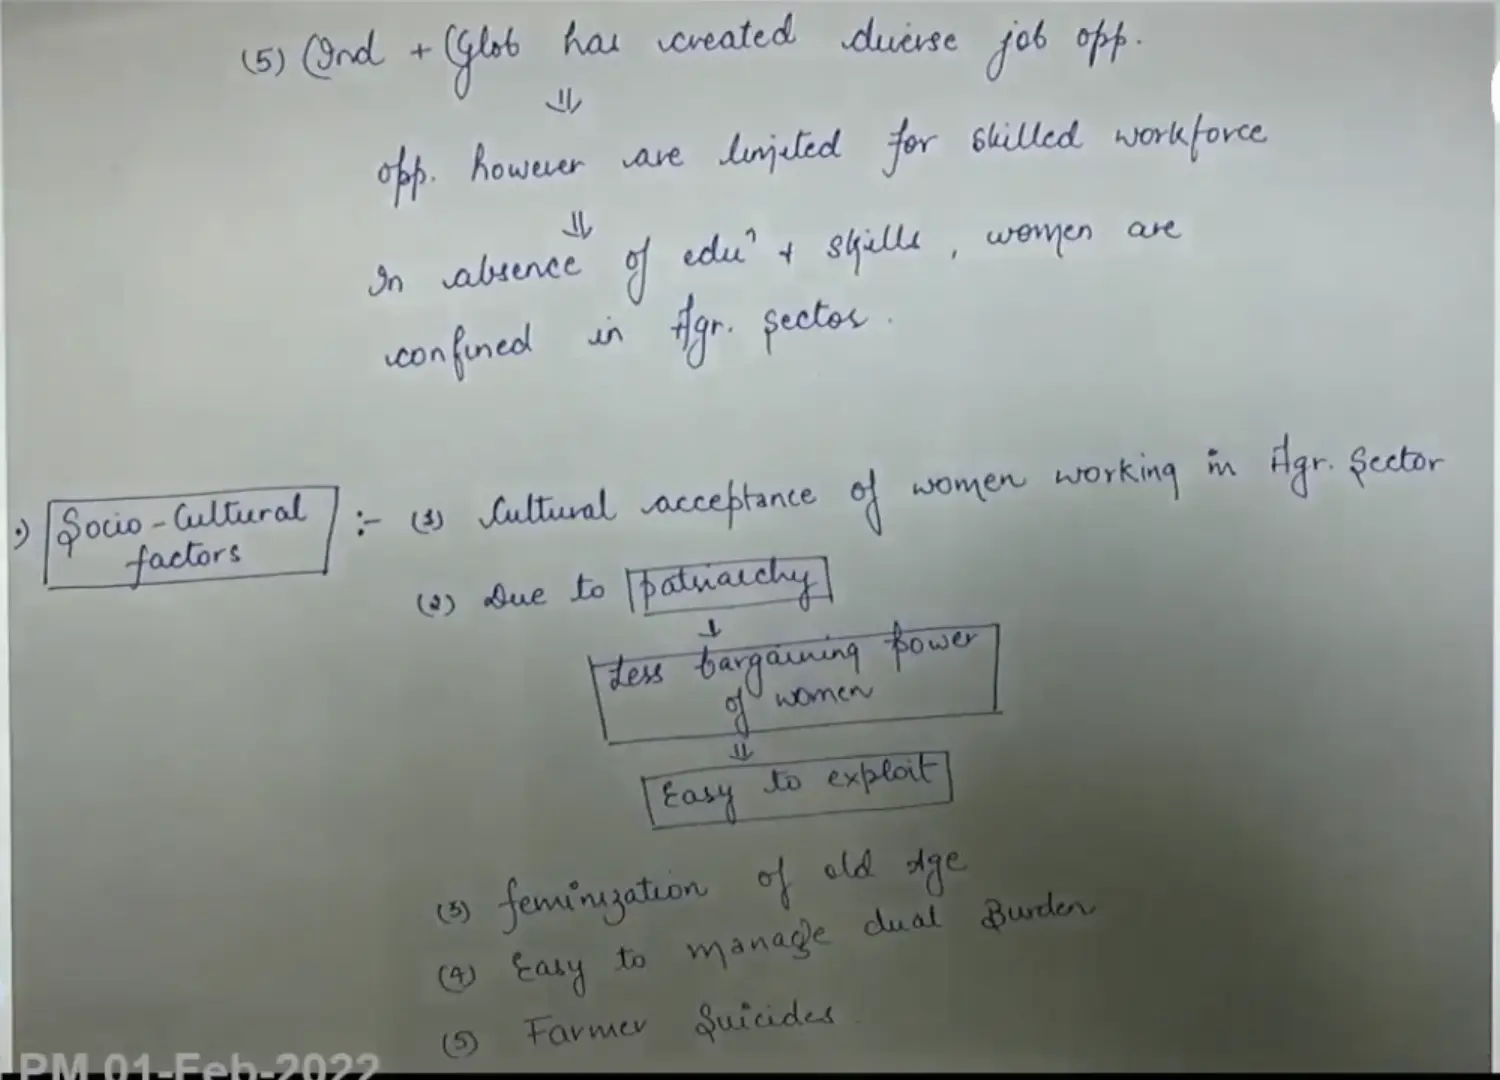 (5) Ind + Glob has created diverse job opp.
⇓
opp. however are limited for skilled workforce
⇓
In absence of eduⁿ + skills, women are
confined in Agr. sector.
•) Socio-Cultural factors :- (1) Cultural acceptance of women working in Agr. Sector
(2) Due to patriarchy
↓
Less bargaining power
of women
⇓
Easy to exploit
(3) feminization of old Age
(4) Easy to manage dual Burden
(5) Farmer Suicides
PM 01-Feb-2022